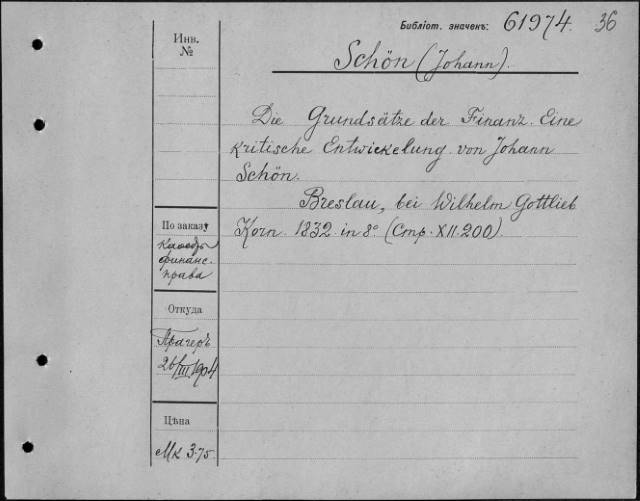 Библіот. значекъ: 61974. 36
Инв.
№
Schön (Johann).
Die Grundsätze der Finanz. Eine
kritische Entwickelung von Johann
Schön.
Breslau, bei Wilhelm Gottlieb
Korn. 1832. in 8° (Стр. XII. 200).
По заказу
финанс.
права
Откуда
Прагеръ
26/III 1904
Цѣна
Mk 3.75.